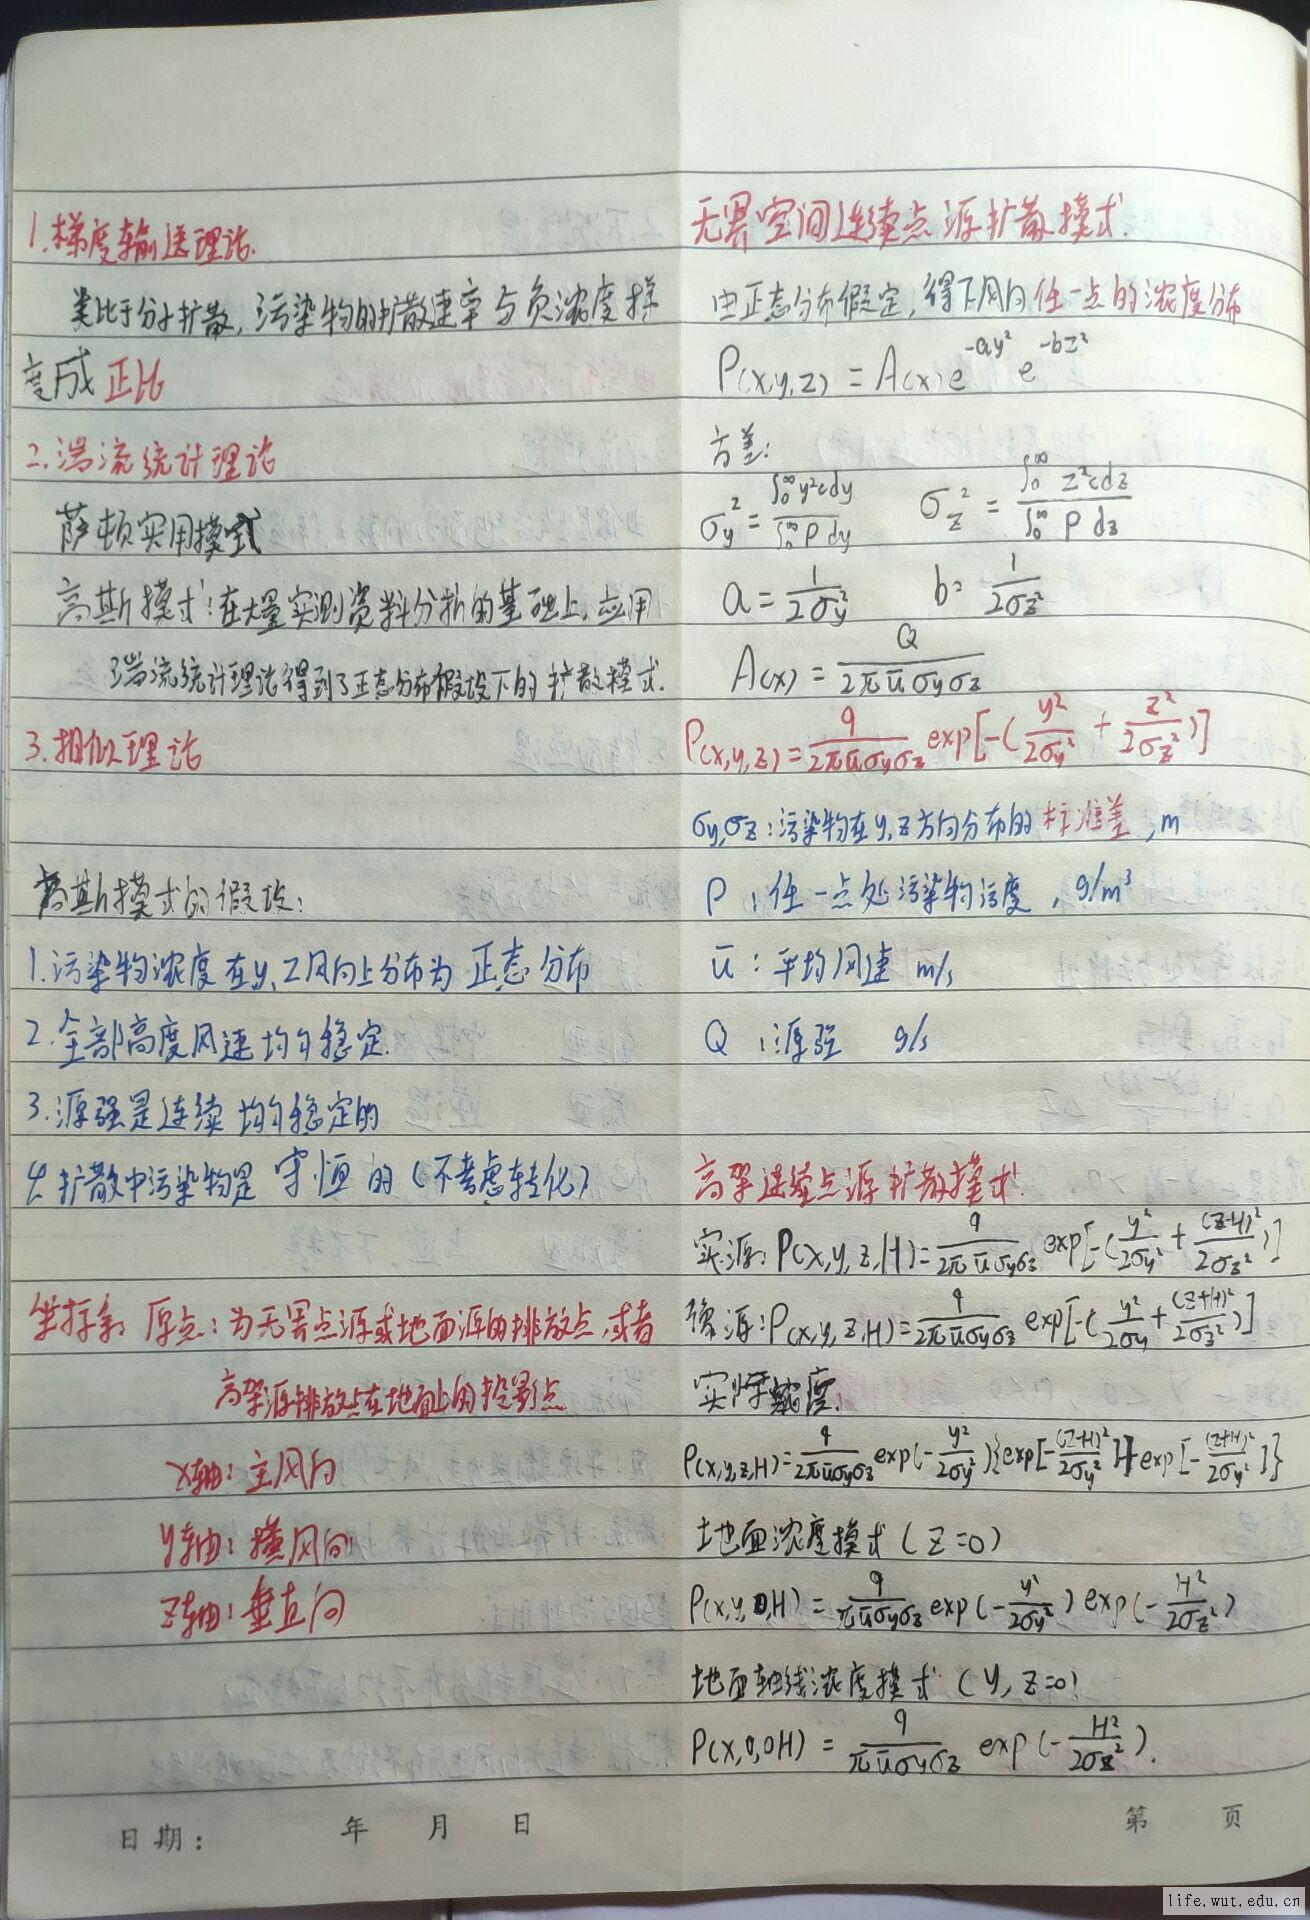 1.梯度输送理论.
类比于分子扩散，污染物的扩散速率与负浓度梯
度成正比
2.湍流统计理论
萨顿实用模式
高斯模式：在大量实测资料分析的基础上，应用
湍流统计理论得到了正态分布假设下的扩散模式.
3.相似理论
高斯模式的假设：
1.污染物浓度在y,z风向上分布为正态分布
2.全部高度风速均匀稳定.
3.源强是连续均匀稳定的
4.扩散中污染物是守恒的（不考虑转化）
坐标系 原点：为无界点源或地面源的排放点，或者
高架源排放点在地面上的投影点
x轴：主风向
y轴：横风向
z轴：垂直向
无界空间连续点源扩散模式.
由正态分布假定，得下风向任一点的浓度分布
ρ(x,y,z) = A(x)e^{-ay²} e^{-bz²}
方差：
σy² = ∫₀^∞ y²cdy / ∫₀^∞ ρ dy  σz² = ∫₀^∞ z²cdz / ∫₀^∞ ρ dz
a = 1/2σy²  b = 1/2σz²
A(x) = Q/2πūσyσz
ρ(x,y,z) = q/2πūσyσz exp[-(y²/2σy² + z²/2σz²)]
σy,σz：污染物在y,z方向分布的标准差，m
ρ：任一点处污染物浓度，g/m³
ū：平均风速 m/s
Q：源强 g/s
高架连续点源扩散模式.
实源：ρ(x,y,z,H) = q/2πūσyσz exp[-(y²/2σy² + (z-H)²/2σz²)]
像源：ρ(x,y,z,H) = q/2πūσyσz exp[-(y²/2σy + (z+H)²/2σz²)]
实际浓度.
ρ(x,y,z,H) = q/2πūσyσz exp(-y²/2σy²){exp[-(z-H)²/2σy²]+exp[-(z+H)²/2σy²]}
地面浓度模式（z=0）
ρ(x,y,0,H) = q/πūσyσz exp(-y²/2σy²) exp(-H²/2σz²)
地面轴线浓度模式（y,z=0）
ρ(x,0,0H) = q/πūσyσz exp(-H²/2σz²).
日期： 年 月 日
第 页
life.wut.edu.cn